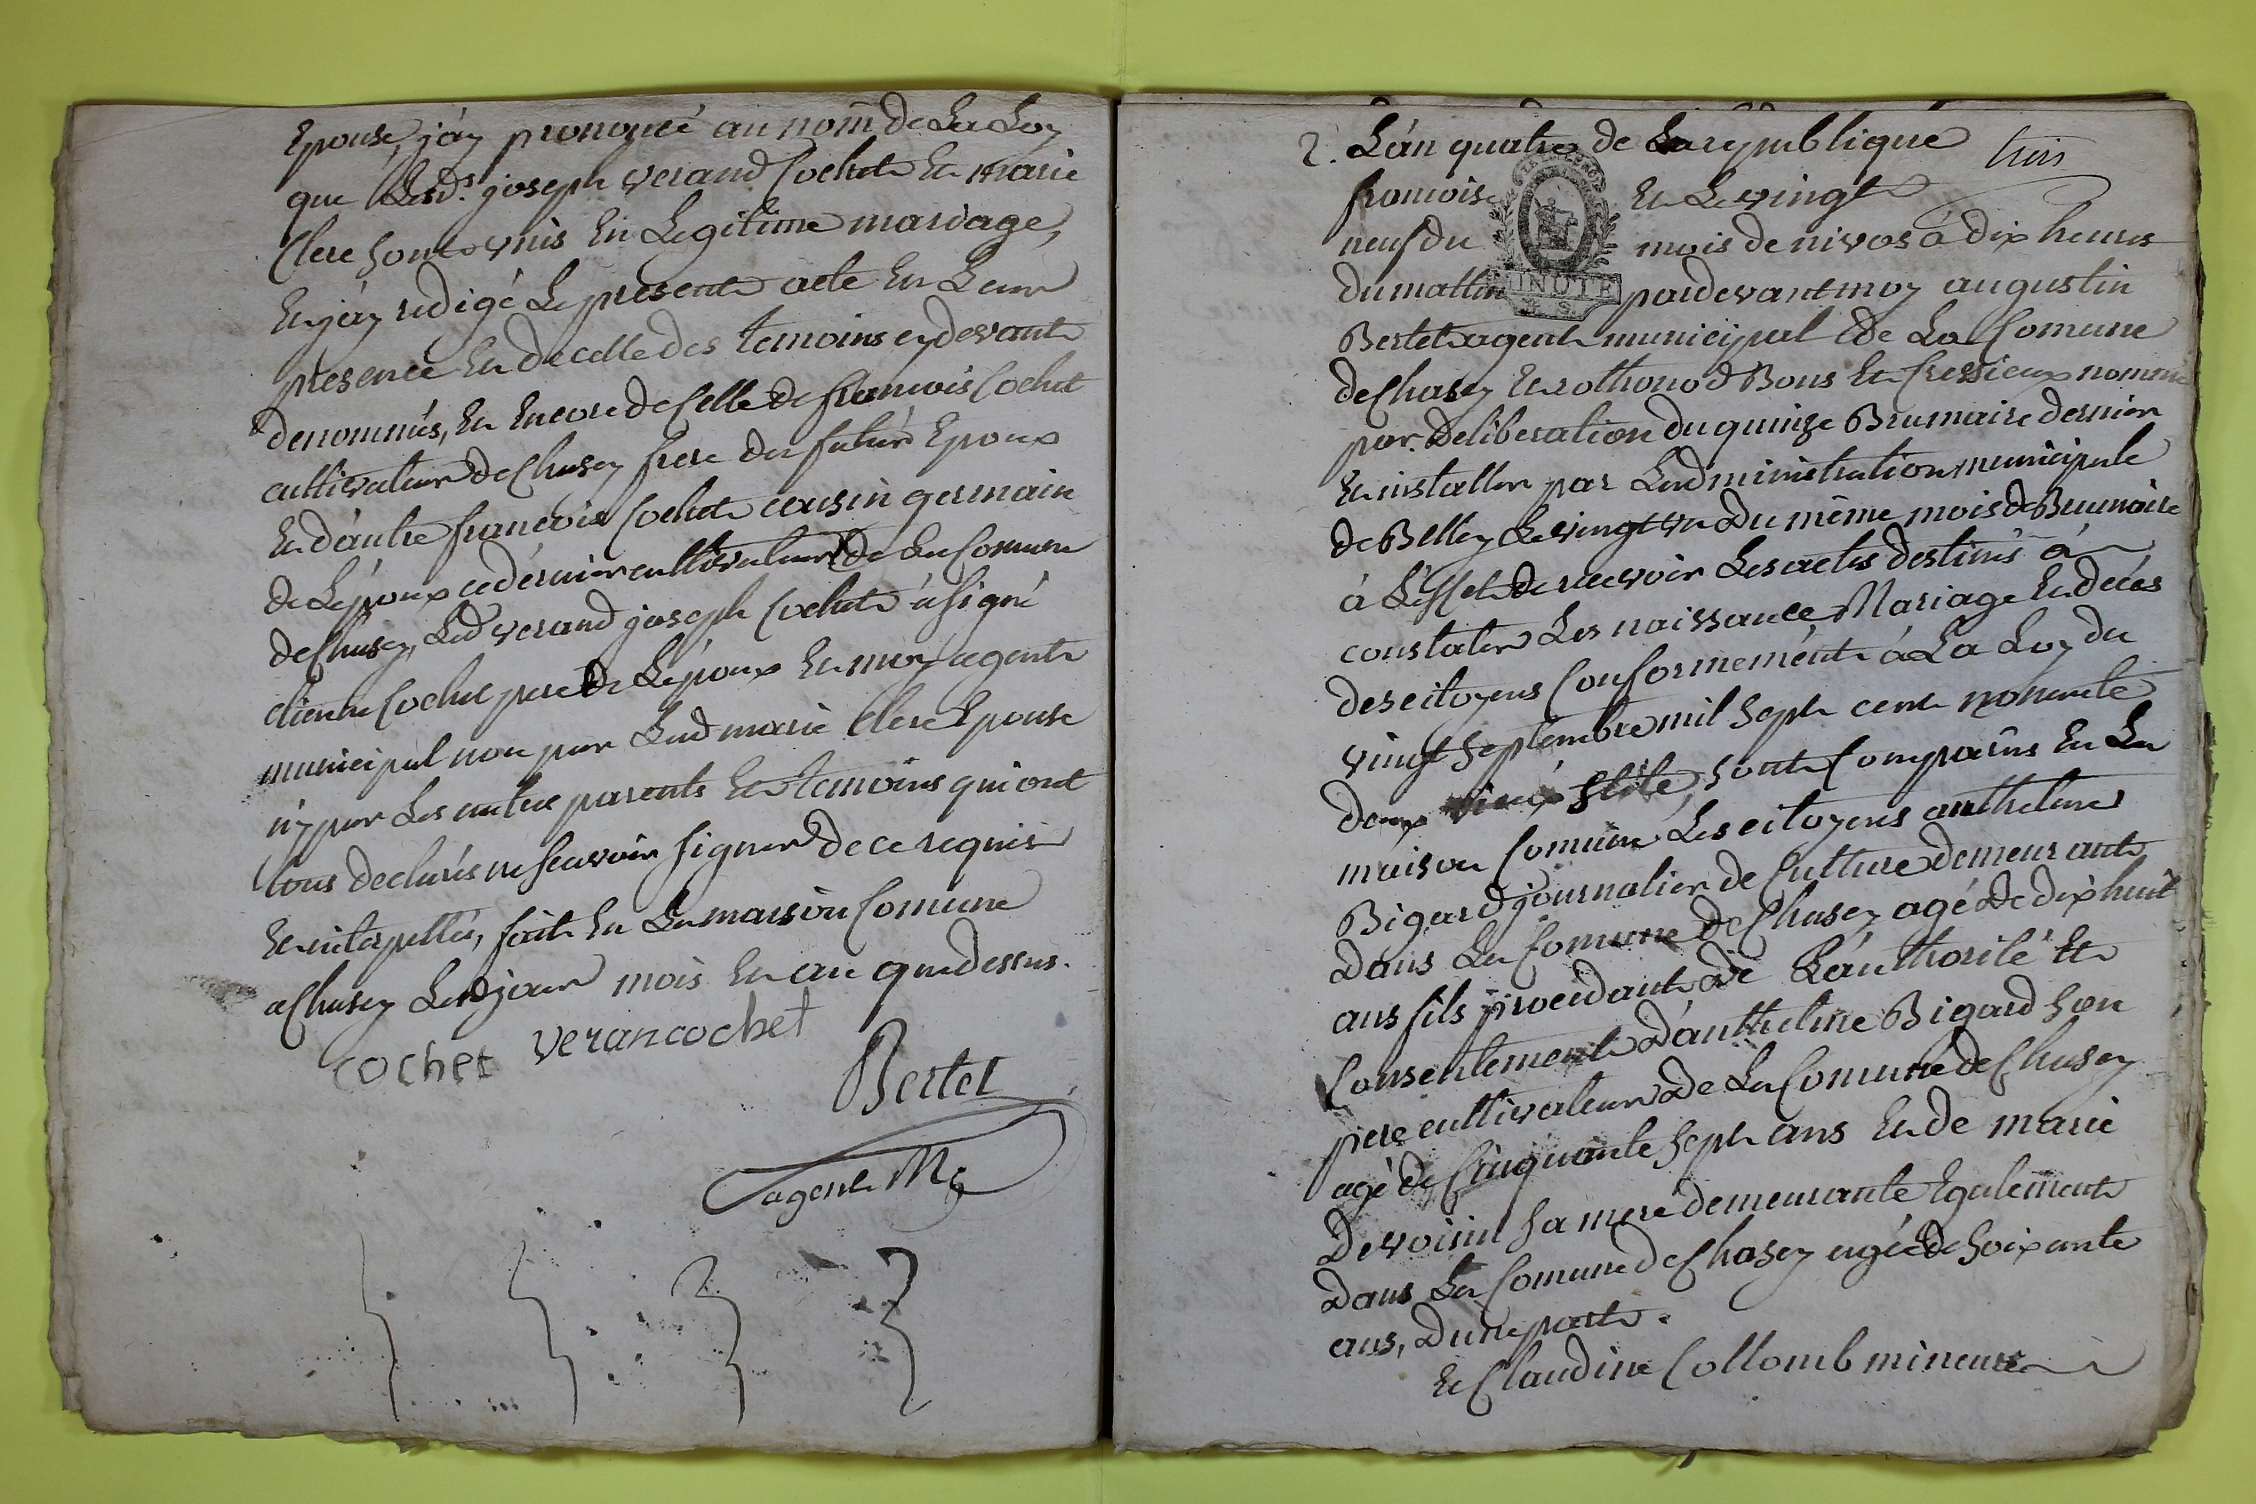 Epouse, j'ay prononcé au nom de La Loy
que Lesd.s joseph verand Cochet Et marie
Clerc sont unis En Legitime mariage,
Et j'ay redigé Le present acte En Leur
presence Et de celle des temoins cydevant
denommés, Et Encore de Celle de francois Cochet
cultivateur de Chasey frere du futur Epoux
Et d'autre francois Cochet cousin germain
de L'époux ce dernier cultivateur de La Comune
de Chasey, Led verand joseph Cochet a signé
etienne Cochet pere de L'époux Et moy agent
municipal non pas Lad marie Clerc Epouse
n'y par Les autre parents Et temoins qui ont
tous declarés ne scavoir signer de ce requis
Et interpellés, fait En La maison Comune
a Chasey Led jour mois Et an que dessus.
cochet verancochet
Bertet
agent M
2. L'an quatre de La republique
trois
francoise Et Le vingt
neuf du mois de nivos à dix heures
du mattin pardevant moy augustin
MINUTE
Bertet agent municipal de La Comune
de Chasey Et rothonod Bons Et Cressieux nommé
par deliberation du quinze Brumaire dernier
Et installer par L'administration municipale
de Belley Le vingt un du même mois de Brumaire
à L'effet de recevoir Les actes destinés à
constater Les naissance Mariage Et décés
des citoyens Conformément à La Loy du
vingt septembre mil sept cent nonante
deux vieux stile, sont Comparus En La
maison Comune Les citoyens anthelme
Bigard journalier de Culture demeurant
dans La Comune de Chasey agé de dix huit
ans fils procedant de L'authorité Et
Consentement d'anthelme Bigard son
pere cultivateur de La Comune de Chasey
agé de Cinquante sept ans Et de marie
devoisin sa mere demeurante Egalement
dans La Comune de Chasey agée de soixante
ans, d'une part.
Et Claudine Collomb mineure